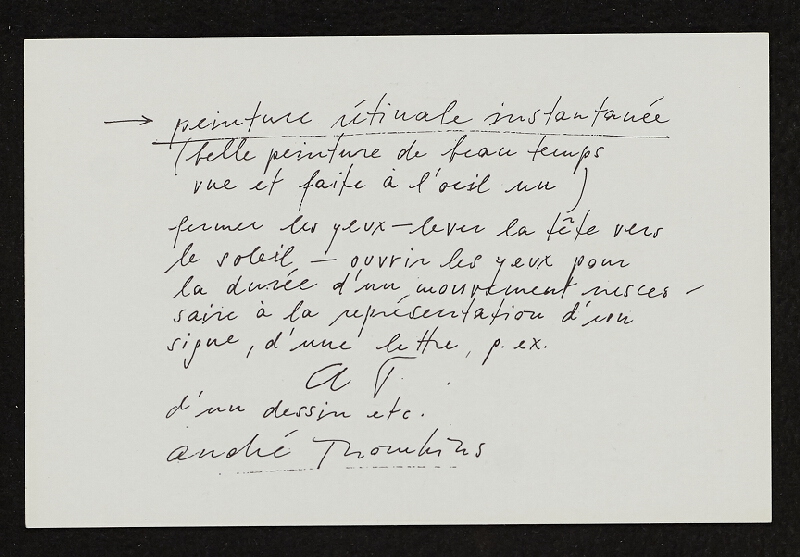 → peinture rétinale instantanée
(belle peinture de beau temps
vue et faite à l'oeil nu)
fermer les yeux – lever la tête vers
le soleil – ouvrir les yeux pour
la durée d'un mouvement nesces-
saire à la représentation d'un
signe, d'une lettre, p. ex.
a T.
d'un dessin etc.
andré Thomkins